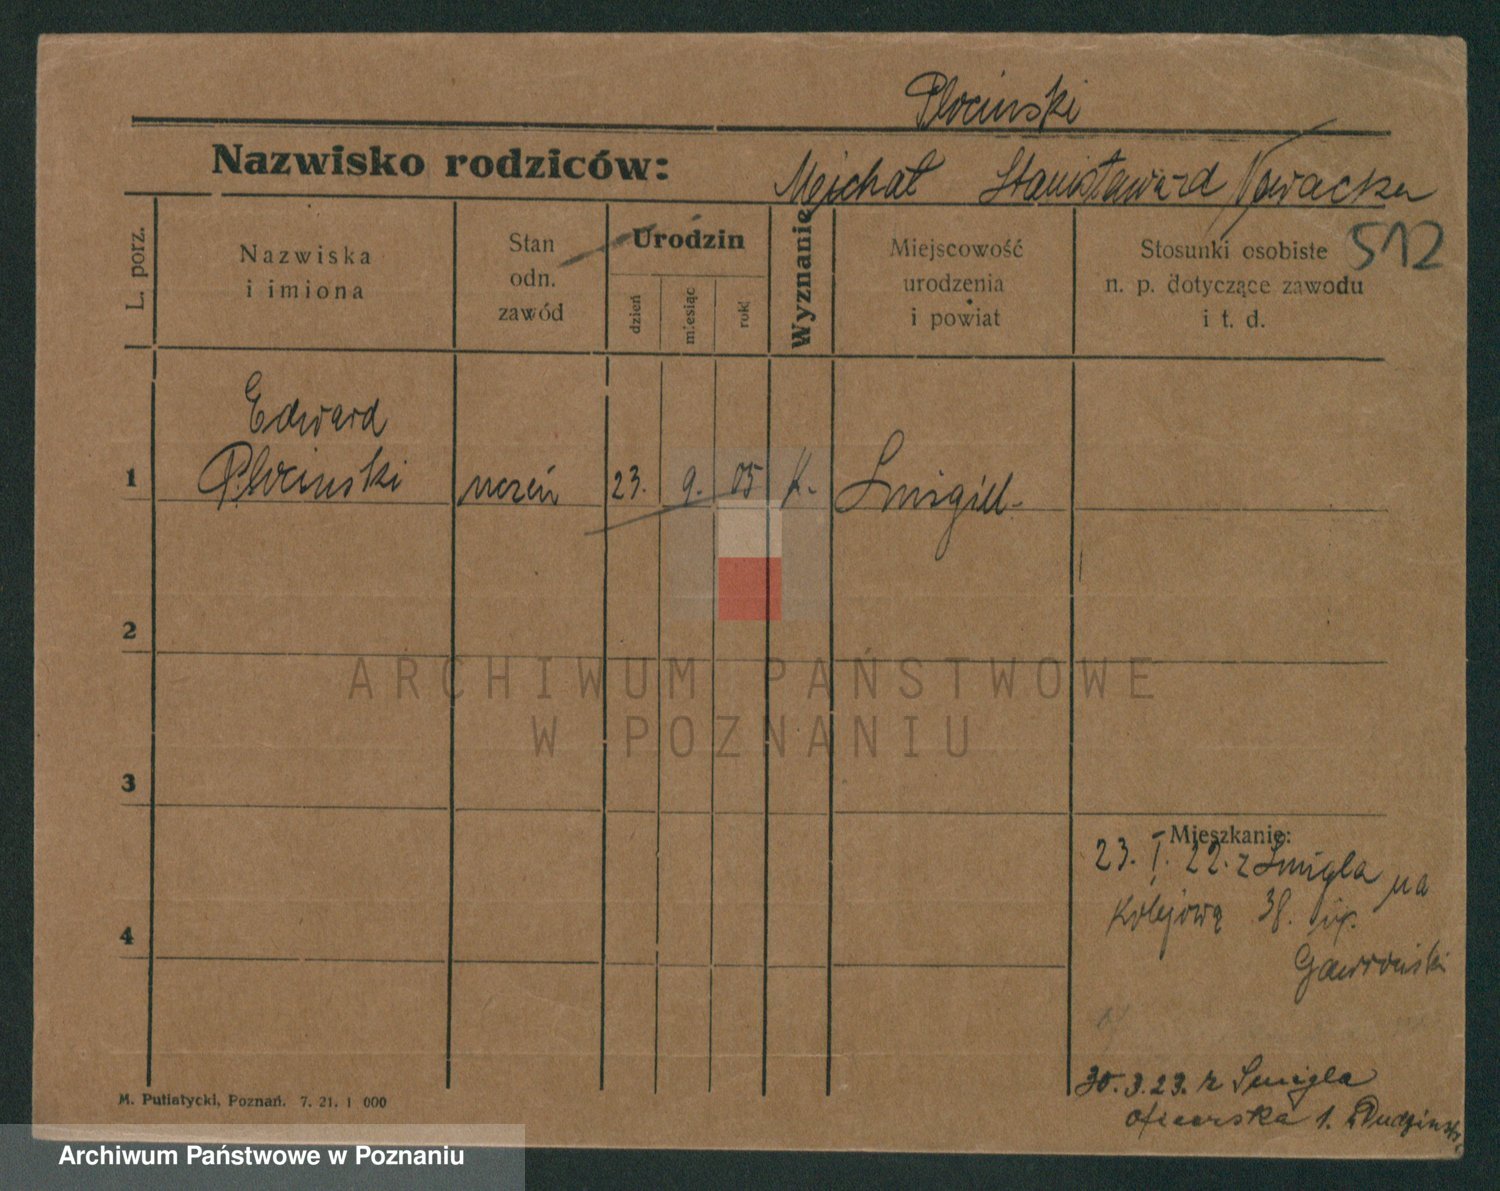 Płociński
Nazwisko rodziców: Michał Stanisława zd Nowacka
512
L. porz.
Nazwiska i imiona
Stan odn. zawód
Urodzin
dzień
miesiąc
rok
Wyznanie
Miejscowość urodzenia i powiat
Stosunki osobiste n. p. dotyczące zawodu i t. d.
Edward
1 Płociński uczeń 23. 9. 05 k. Śmigiel
2
3
4
Mieszkanie:
23. I. 22. z Śmigla na
Kolejową 38. up.
Gawroński
30.3.23. z Śmigla
1. Dudzińsk
M. Putiatycki, Poznań. 7. 21. 1 000
ARCHIWUM PAŃSTWOWE
W POZNANIU
Archiwum Państwowe w Poznaniu